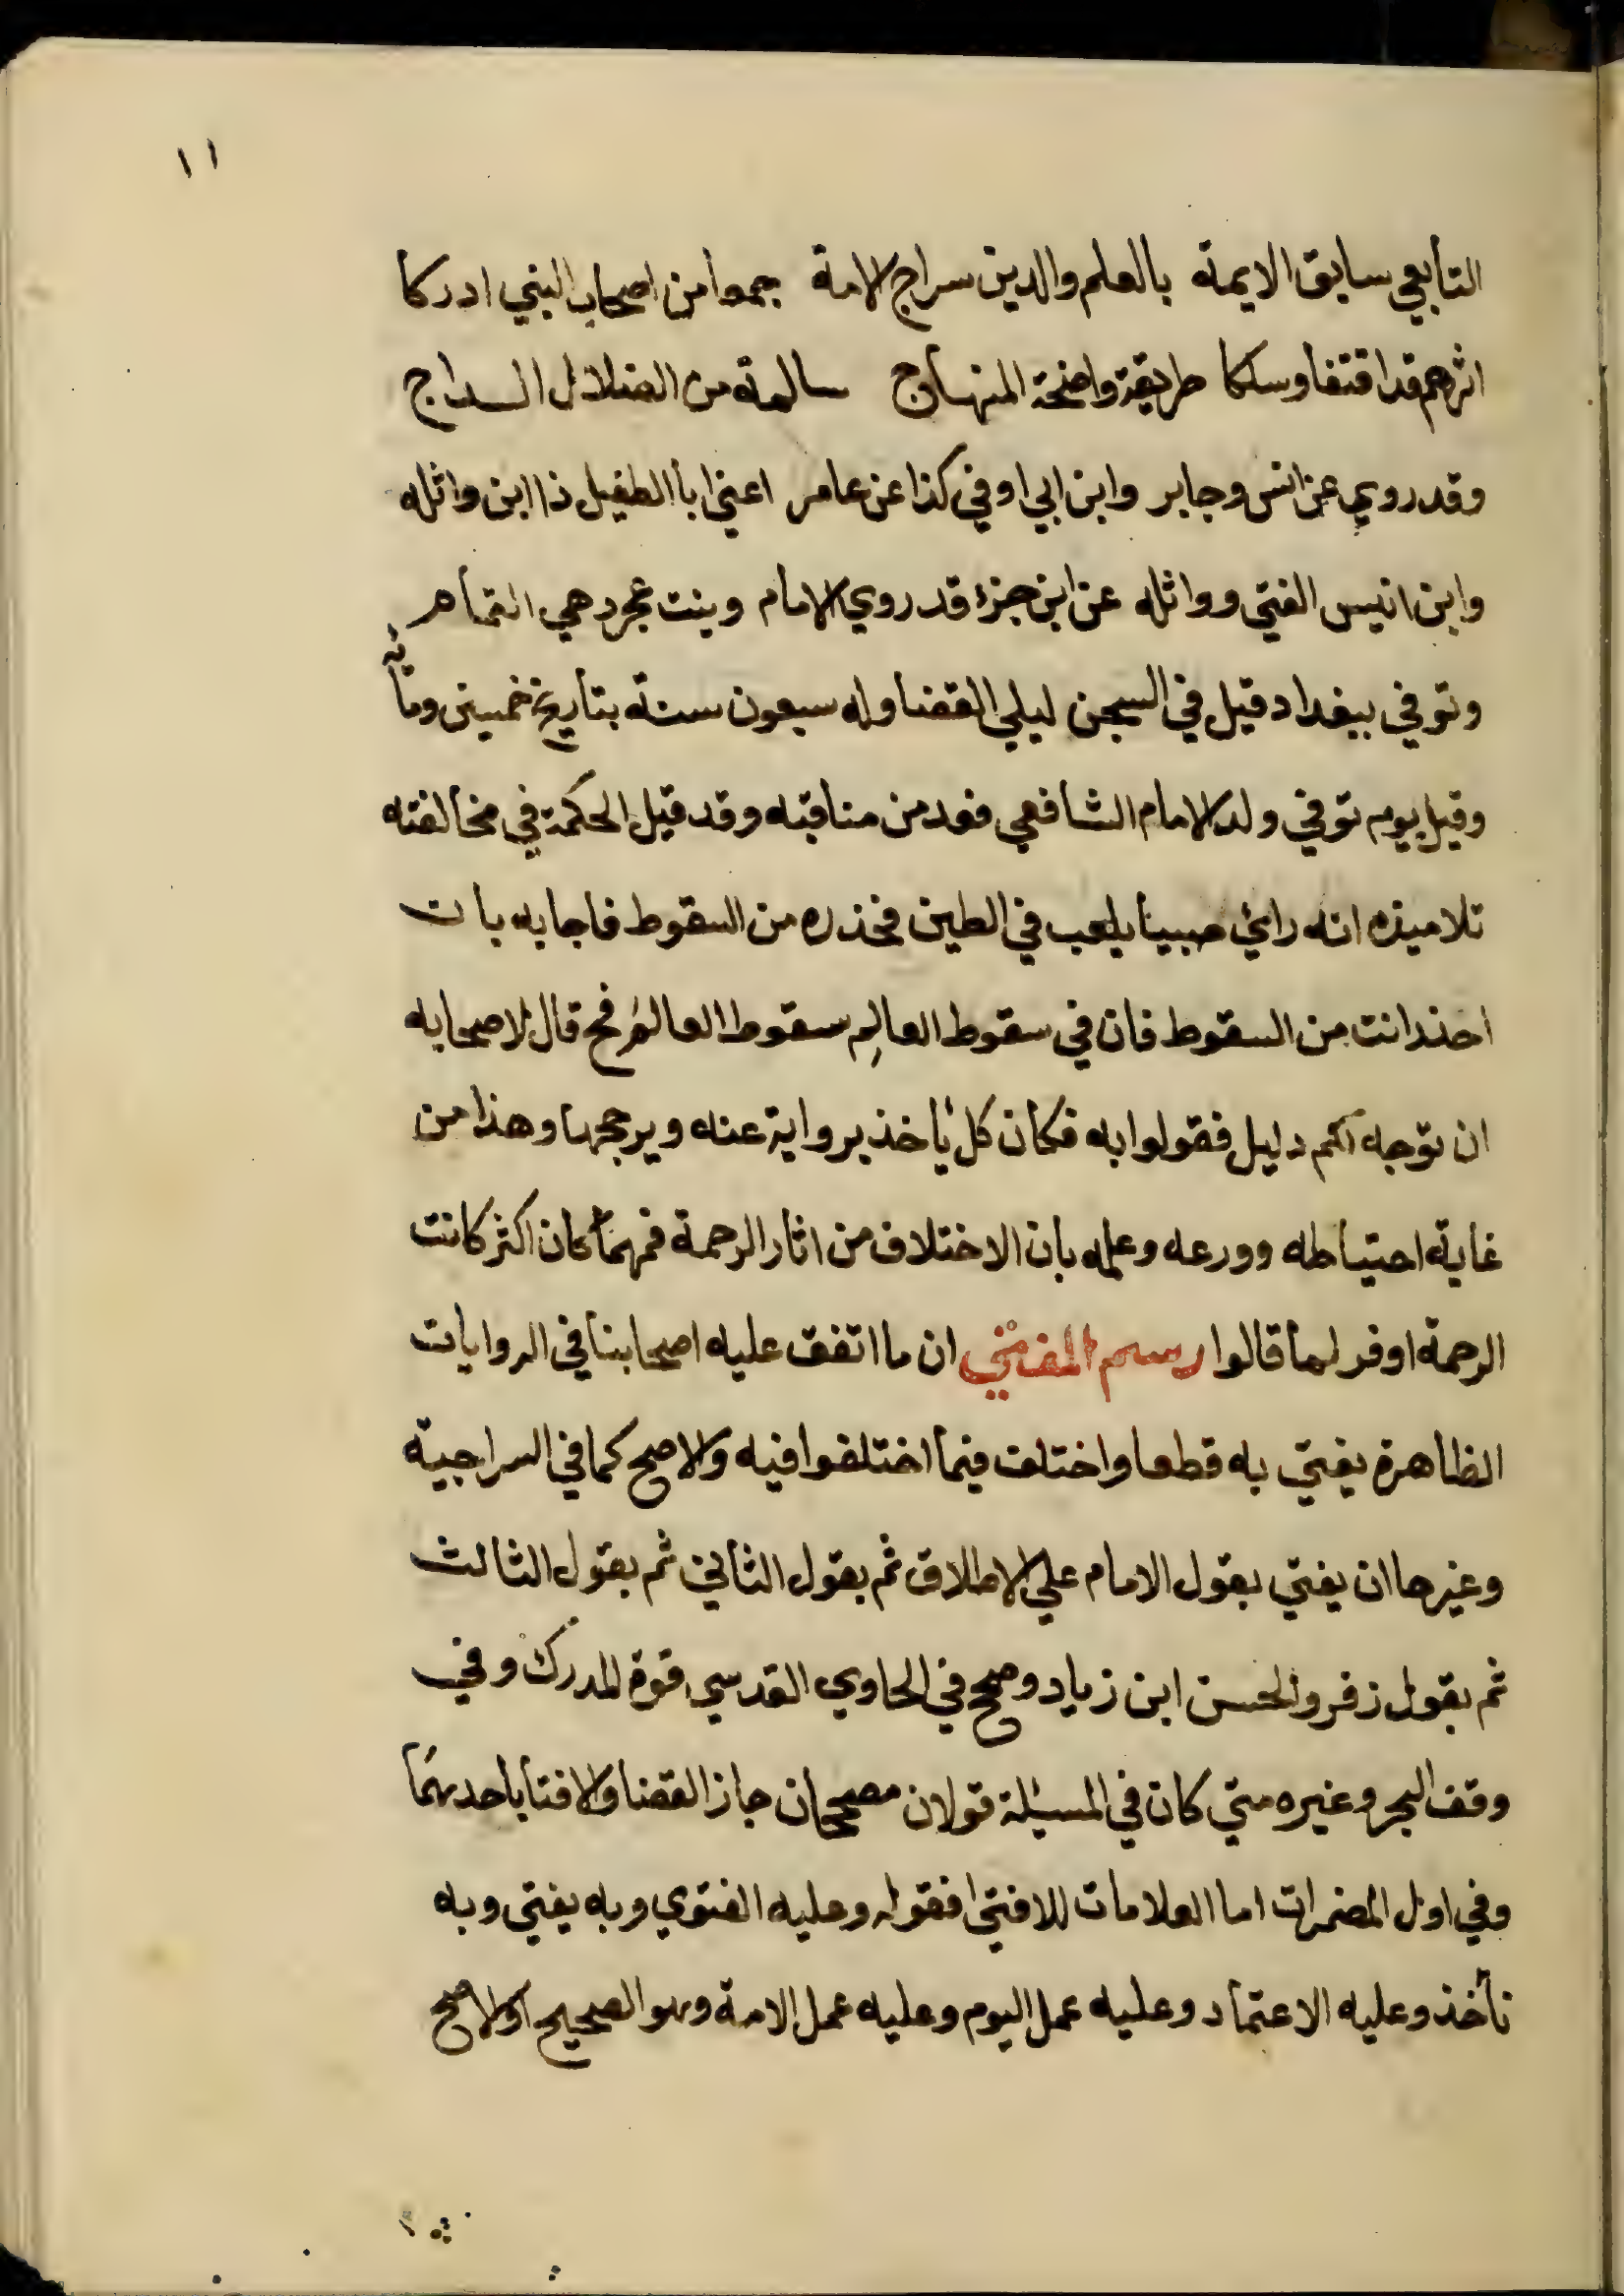 ١١
التابعي سابق الايمة بالعلم والدين سراج الامة جمعا من اصحاب النبي ادركا
اثرهم قد اقتفا وسلكا طريقة واضحة المنهاج سالمة من الضلال الداج
وقد روي عن انس وجابر وابن ابي اوفي كذا عن عامر اعني ابا الطفيل ذا ابن واثله
وابن انيس الفتي وواثله عن ابن جزء قد روي الامام وبنت عجرد هي التمام
وتوفي ببغداد قيل في السجن ليلي القضا وله سبعون سنة بتاريخ خمسين ومائة
وقيل يوم توفي ولد الامام الشافعي فعد من مناقبه وقد قيل الحكمة في مخالفته
تلاميذه انه رائ صبيا يلعب في الطين فحذره من السقوط فاجابه بان
احذر انت من السقوط فان في سقوط العالِم سقوط العالَم فح قال لاصحابه
ان توجه لكم دليل فقولوا به فكان كل ياخذ برواية عنه ويرجحها وهذا من
غاية احتياطه وورعه وعلمه بان الاختلاف من اثار الرحمة فمهما كان اكثر كانت
الرحمة اوفر لما قالوا رسم المفتي ان ما اتفق عليه اصحابنا في الروايات
الظاهرة يفتي به قطعا واختلف فيما اختلفوا فيه والاصح كما في السراجية
وغيرها ان يفتي بقول الامام علي الاطلاق ثم بقول الثاني ثم بقول الثالث
ثم بقول زفر والحسن ابن زياد وصحح في الحاوي القدسي قوة المدرك وفي
وقف البحر وغيره متي كان في المسئلة قولان مصححان جاز القضا والافتا باحدهما
وفي اول المضمرات اما العلامات للافتي فقوله وعليه الفتوي وبه يفتي وبه
نأخذ وعليه الاعتماد وعليه عمل اليوم وعليه عمل الامة وهو الصحيح او الاصح